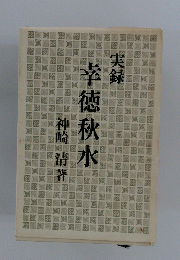 実録
幸徳秋水
神崎清著